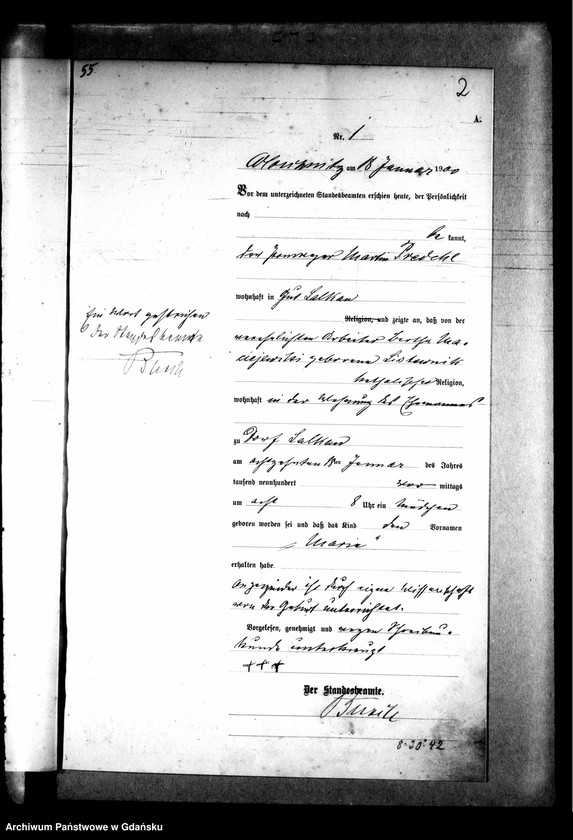 55.
2
A.
Nr. 1
am 18 Januar 1900
Vor dem unterzeichneten Standesbeamten erschien heute, der Persönlichkeit
nach
be kannt,
der Martin
wohnhaft in Gut Lalkau
Religion, und zeigte an, daß von der
verehelichten Arbeiter Bertha Ma-
ciejewski geborene
katholischer Religion,
wohnhaft in der Wohnung des Ehemannes
zu Dorf Lalkau
am achtzehnten 18ten Januar des Jahres
tausend neunhundert vor mittags
um acht 8 Uhr ein Mädchen
geboren worden sei und daß das Kind den Vornamen
„Maria"
erhalten habe.
Anzeigender ist durch eigne Wissenschaft
von der Geburt unterrichtet.
Vorgelesen, genehmigt und wegen Schreibun-
kunde unterkreuzt
+++
Der Standesbeamte.
8·30·42
Ein Wort gestrichen
Der Standesbeamte
Archiwum Państwowe w Gdańsku